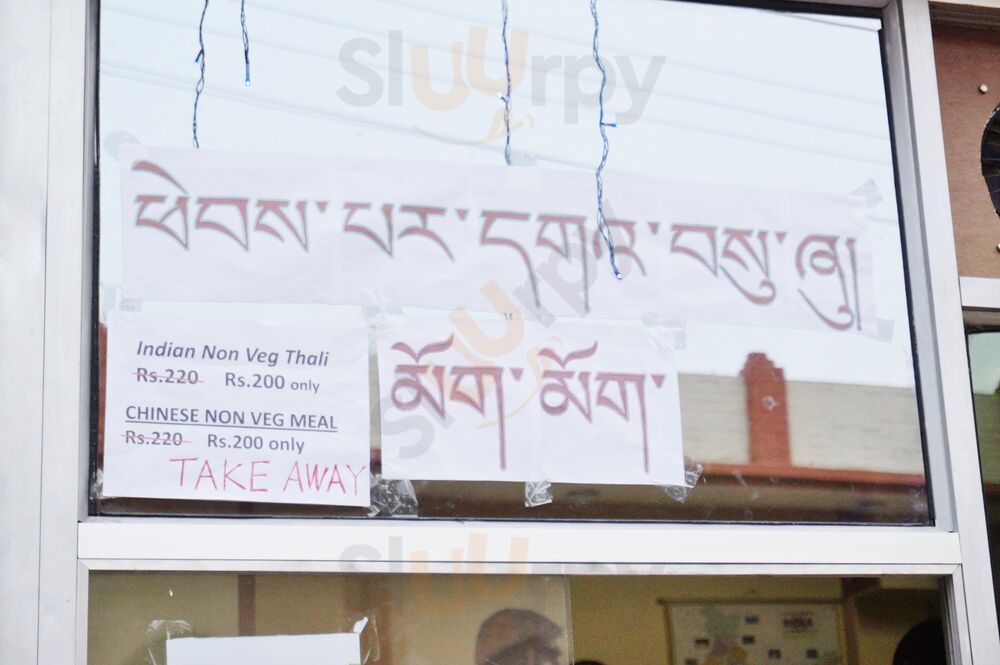 SlUUrpy
ཕེབས་པར་དགའ་བསུ་ཞུ།
Indian Non Veg Thali
Rs.220 Rs.200 only
CHINESE NON VEG MEAL
Rs.220 Rs.200 only
TAKE AWAY
མོག་མོག་
SlUUrpy
SlUUrpy